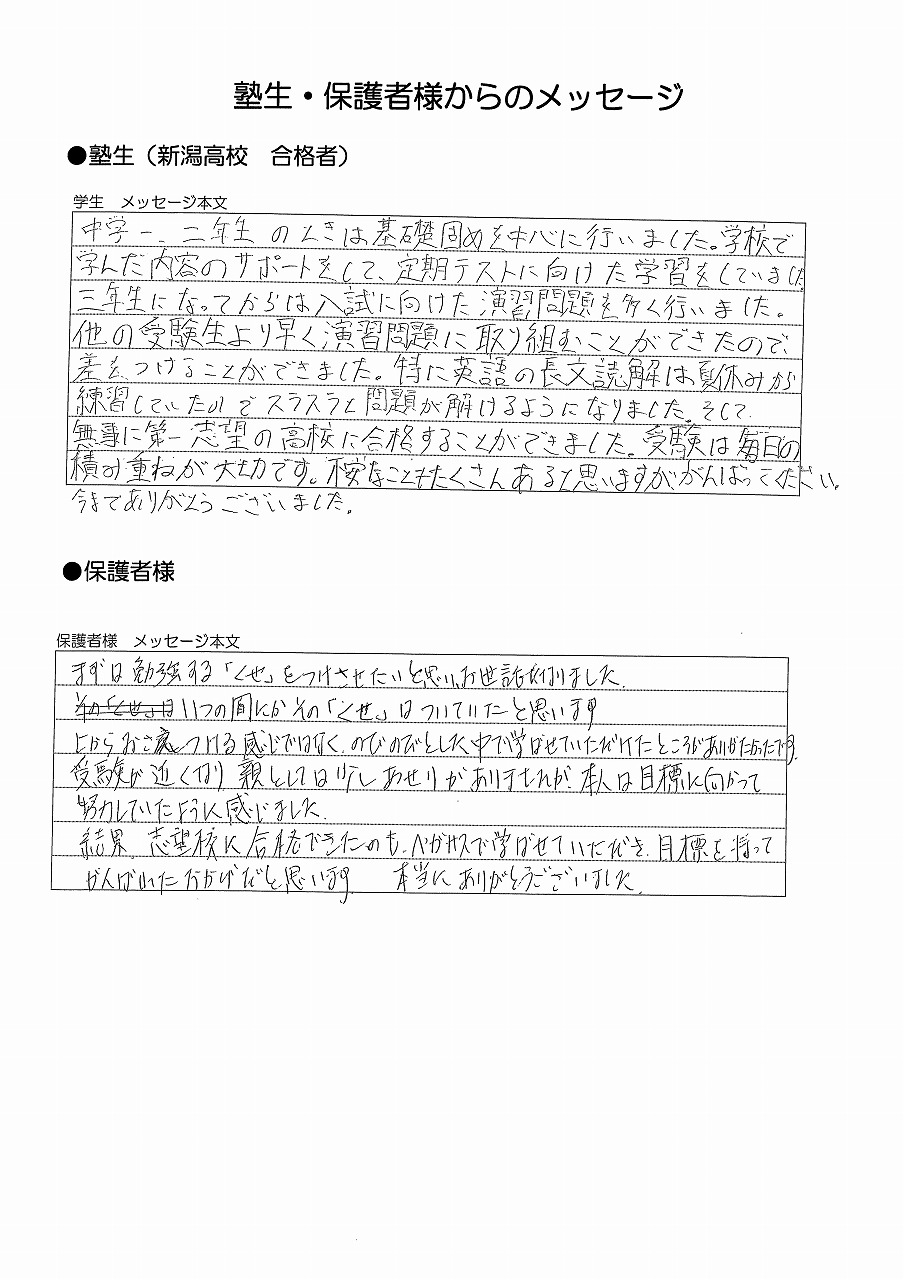 塾生・保護者様からのメッセージ
●塾生（新潟高校　合格者）
学生　メッセージ本文
中学一、二年生 のときは基礎固めを中心に行いました。学校で
学んだ内容のサポートをして、定期テストに向けた学習をしていました。
三年生になってからは入試に向けた演習問題を多く行いました。
他の受験生より早く演習問題に取り組むことができたので、
差をつけることができました。特に英語の長文読解は夏休みから
練習していたのでスラスラと問題が解けるようになりました。そして
無事に第一志望の高校に合格することができました。受験は毎日の
積み重ねが大切です。不安なこともたくさんあると思いますががんばってください。
今までありがとうございました。
●保護者様
保護者様　メッセージ本文
まずは勉強する「くせ」をつけさせたいと思い、お世話になりました。
その「くせ」は いつの間にかその「くせ」はついていたと思います
上からおさえつける感じではなく、のびのびとした中で学ばせていただけたところがありがたかったです。
受験が近くなり 親としては少しあせりがありましたが、本人は目標に向かって
努力していたように感じました。
結果、志望校に合格できたのも、ペガサスで学ばせていただき、目標を持って
がんばれたおかげだと思います。　本当にありがとうございました。